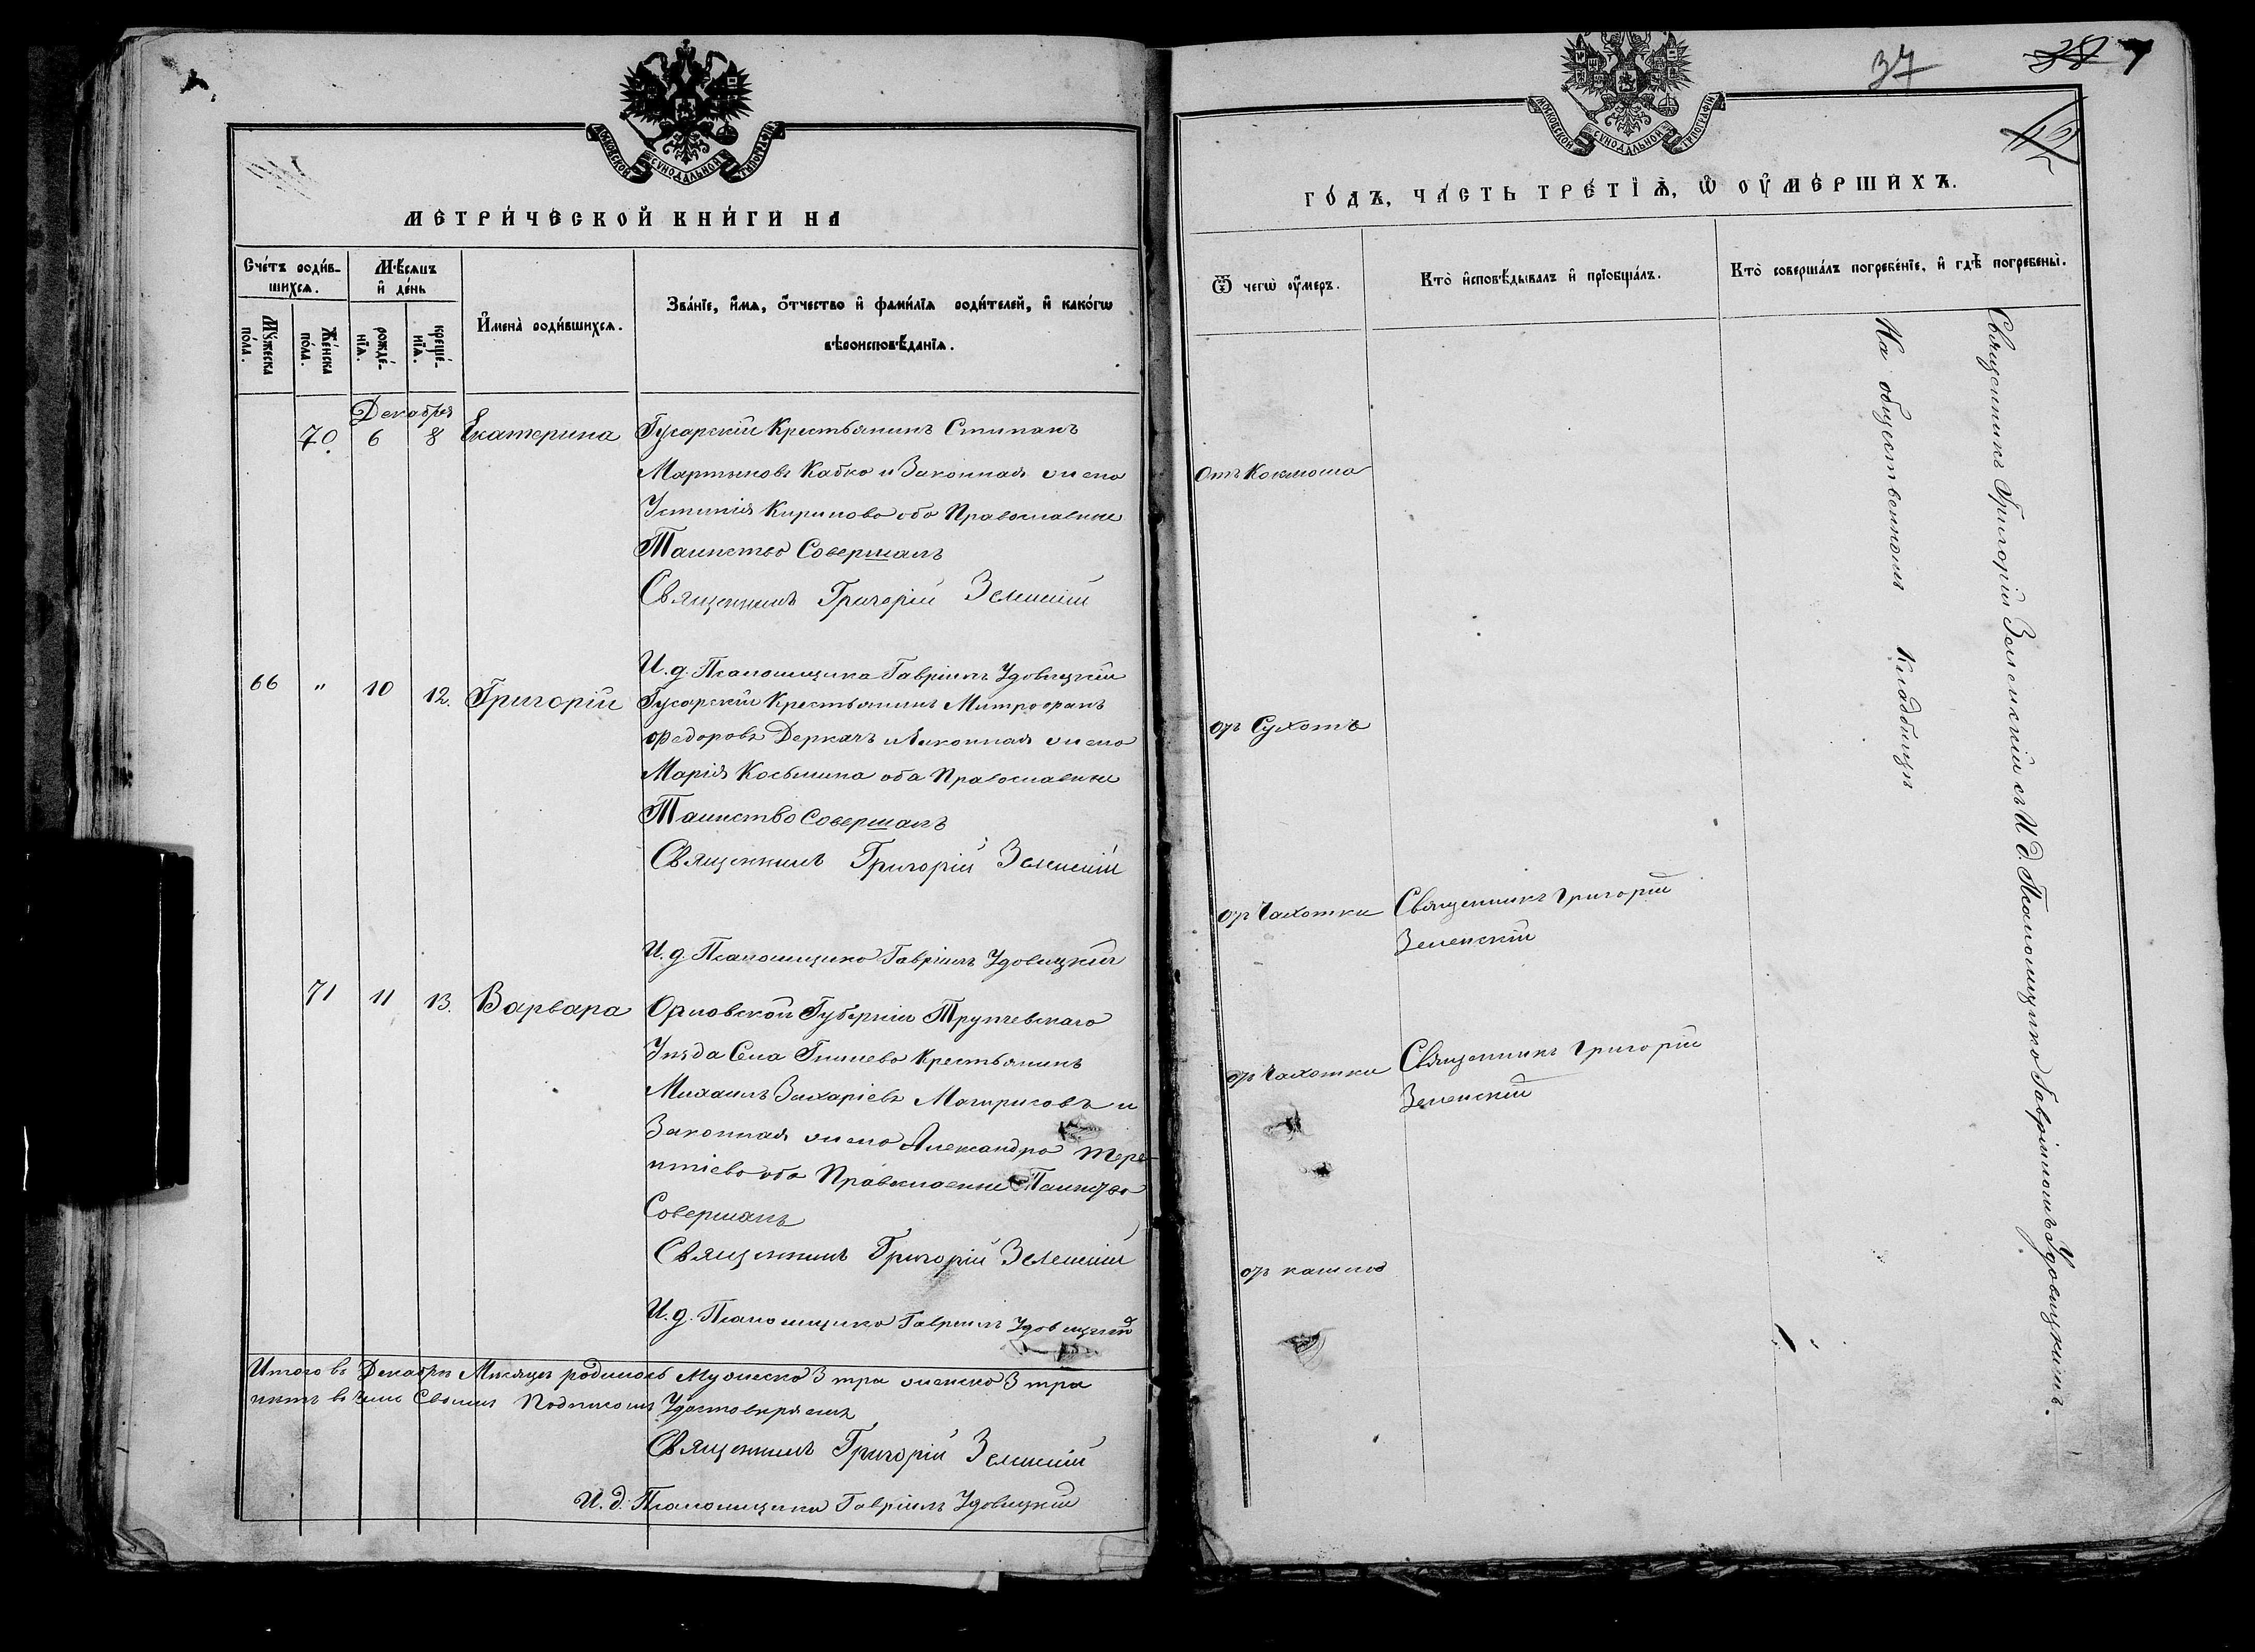 МОСКОВСКОЙ СѴНОДАЛЬНОЙ ТИПОГРАФІИ
МЕТРИ́ЧЕСКОЙ КНИ́ГИ НА
Сче́тъ роди́в-
шихся.
Мꙋ́жеска
по́ла.
Же́нска
по́ла.
Мѣ́сяцъ
и҆ де́нь
рожде́-
нїѧ.
креще́-
нїѧ.
И҆мена̀ роди́вшихсѧ.
Зва́нїе, и҆́мѧ, ѻ҆́тчество и҆ фами́лїѧ роди́телей, и҆ како́гѡ
вѣроисповѣ́данїѧ.
Декабря
70. 6 8 Екатерина Гусарскій Крестьянинъ Стипанъ
Мартыновъ Кабко и Законная жена
Устинія Кирилова оба Православные
Таинство Совершалъ
Священникъ Григорій Зеленскій
И. д. Псаломщика Гавріилъ Удовицкій
66 " 10 12. Григорій Гусарскій Крестьянинъ Митрофанъ
Федоровъ Деркачъ и Законная жена
Марія Косьмина оба Православные
Таинство Совершалъ
Священникъ Григорій Зеленскій
И. д. Псаломщика Гавріилъ Удовицкій
71 11 13. Варвара Орловской Губерніи Трупчевскаго
Уѣзда Села Крестьянинъ
Михаилъ Захаріевъ и
Законная жена Александра Тере-
нтіева оба Православные Таинство
Совершалъ
Священникъ Григорій Зеленскій
И. д. Псаломщика Гавріилъ Удовицкій
Итого въ Декабрѣ Мѣсяцѣ родилось Мужеска 3 три женска 3 три
въ чемъ Своимъ Подписомъ Удостовѣряемъ
Священникъ Григорій Зеленскій
И. д. Псаломщика Гавріилъ Удовицкій
37
МОСКОВСКОЙ СѴНОДАЛЬНОЙ ТИПОГРАФІИ
ГО́ДЪ, ЧА́СТЬ ТРЕ́ТІѦ, Ѡ҆ ОУ҆МЕ́РШИХЪ.
Ѿ чегѡ̀ ᲂу҆́меръ.
Кто̀ и҆сповѣ́дывалъ и҆ прїобща́лъ.
Кто̀ соверша́лъ погребе́нїе, и҆ гдѣ̀ погребены̀.
Отъ Коклюша
отъ Сухотъ
отъ Чахотки Священникъ Григорій
Зеленскій
отъ Чахотки Священникъ Григорій
Зеленскій
отъ кашля
Священникъ Григорій Зеленскій съ И. д. Псаломщика Гавріиломъ Удовицкимъ.
На общественномъ Кладбищѣ